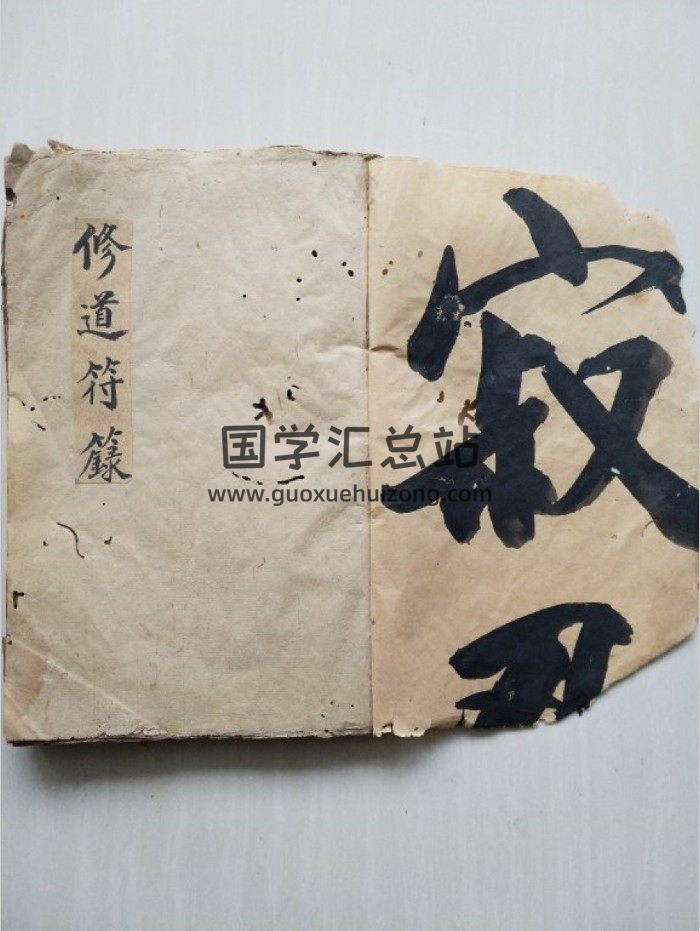 修道符籙
寂
国学汇总站
www.guoxuehuizong.com